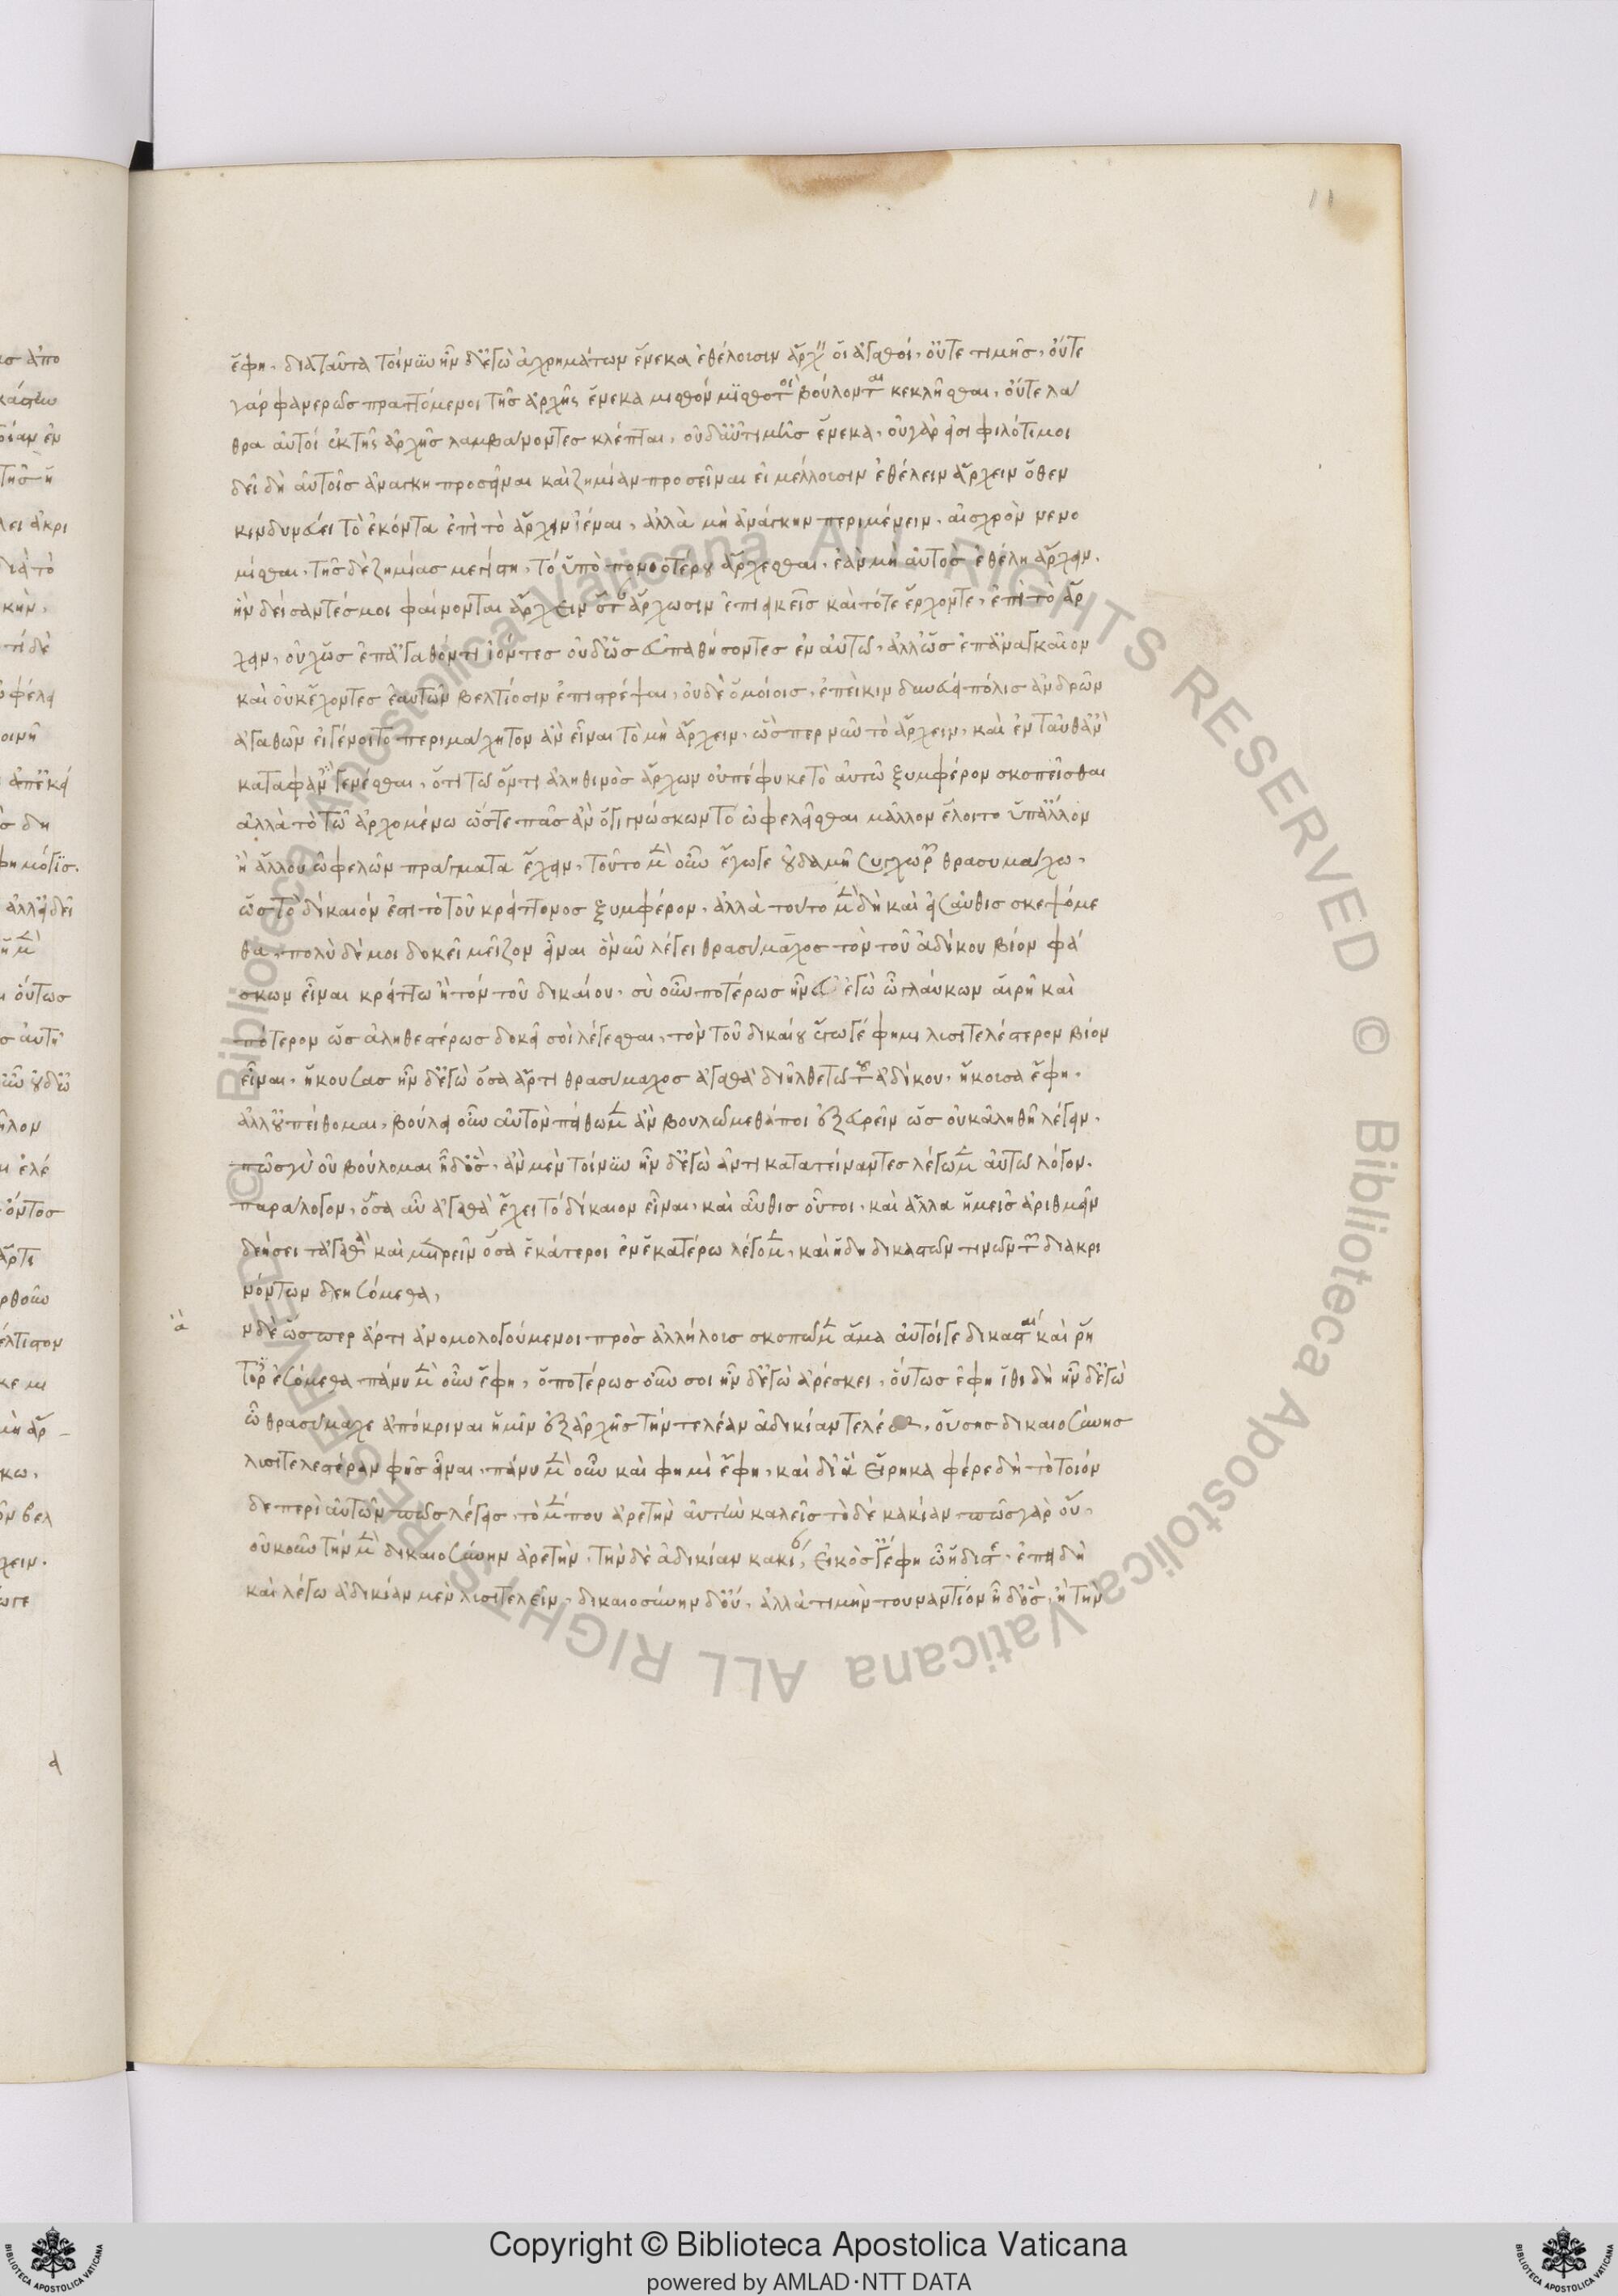 11
ἔφη. διαταῦτα τοίνυν ἦν δἐγὼ ἀχρημάτων ἕνεκα ἐθέλουσιν ἄρχειν οἱ ἀγαθοί. οὔτε τιμῆς. οὔτε
γάρ φανερῶς πραττόμενοι τῆς ἀρχῆς ἕνεκα μισθόν μισθωτοὶ βούλονται κεκλῆσθαι. οὔτε λά
θρα αὐτοί ἐκτῆς ἀρχῆς λαμβάνοντες κλέπται. οὐδαὖτιμῆς ἕνεκα. οὐγάρ εἰσι φιλότιμοι
δεῖ δὴ αὐτοῖς ἀνάγκη προσεῖναι καὶ ζημίαν προσεῖναι εἰ μέλλουσιν ἐθέλειν ἄρχειν ὅθεν
κινδυνεύει τὸ ἑκόντα ἐπὶ τὸ ἄρχειν ἰέναι. ἀλλὰ μὴ ἀνάγκην περιμένειν. αἰσχρὸν νενο
μίσθαι. τῆς δὲ ζημίας μεγίστη. τό ὑπὸ πονηροτέρου ἄρχεσθαι. ἐὰν μὴ αὐτὸς ἐθέλη ἄρχειν.
ἣν δείσαντές μοι φαίνονται ἄρχειν ὅταν ἄρχωσιν ἐπιεικεῖς καὶ τότε ἔρχονται ἐπὶ τὸ ἄρ
χειν. οὐχὡς ἐπἀγαθόν τι ἰόντες οὐδὡς εὐπαθήσοντες ἐν αὐτῶ. ἀλλὡς ἐπἀναγκαῖον
καὶ οὐκἔχοντες ἑαυτῶν βελτίοσιν ἐπιτρέψαι. οὐδὲ ὁμοίοις. ἐπεὶ κινδυνεύει πόλις ἀνδρῶν
ἀγαθῶν εἰ γένοιτο περιμάχητον ἂν εἶναι τὸ μὴ ἄρχειν. ὥσπερ νῦν τὸ ἄρχειν. καὶ ἐνταῦθἂν
καταφανὲς γενέσθαι. ὅτι τῶ ὄντι ἀληθινὸς ἄρχων οὐπέφυκε τὸ αὑτῶ ξυμφέρον σκοπεῖσθαι
ἀλλὰ τὸ τῶ ἀρχομένω ὥστε πᾶς ἂν ὁγιγνώσκων τό ὠφελεῖσθαι μᾶλλον ἕλοιτο ὑπἄλλου
ἢ ἄλλον ὠφελῶν πράγματα ἔχειν. τοῦτο μὲν οὖν ἔγωγε οὐδαμῆ συγχωρῶ θρασυμάχω.
ὡς τὸ δίκαιόν ἐστι τὸ τοῦ κρείττονος ξυμφέρον. ἀλλὰ τοῦτο μὲν δὴ καὶ εἰσαῦθις σκεψόμε
θα. πολὺ δέ μοι δοκεῖ μεῖζον εἶναι ὃ νῦν λέγει θρασύμαχος τὸν τοῦ ἀδίκου βίον φά
σκων εἶναι κρείττω ἢ τόν τοῦ δικαίου. σὺ οὖν ποτέρως ἦν δ ἐγὼ ὦ γλαύκων αἱρῆ καὶ
πότερον ὡς ἀληθεστέρως δοκεῖ σοὶ λέγεσθαι. τὸν τοῦ δικαίου ἔγωγέ φημι λυσιτελέστερον βίον
εἶναι. ἤκουσας ἦν δἐγὼ ὅσα ἄρτι θρασύμαχος ἀγαθὰ διῆλθε τῶ τοῦ ἀδίκου. ἤκουσα ἔφη.
ἀλλοὐ πείθομαι. βούλει οὖν αὐτὸν πείθωμεν ἂν βουλώμεθά ποι ἐξευρεῖν ὡς οὐκἀληθῆ λέγειν.
πῶς γὰρ οὐ βούλομαι ἦ δὅς. ἂν μὲν τοίνυν ἦν δἐγὼ ἀντικατατείναντες λέγωμεν αὐτῶ λόγον.
παρὰ λόγον. ὅσα αὖ ἀγαθὰ ἔχει τό δίκαιον εἶναι. καὶ αὖθις οὗτοι. καὶ ἄλλα ἡμεῖς ἀριθμεῖν
δεήσει τἀγαθὰ καὶ μετρεῖν ὅσα ἑκάτεροι ἐν ἑκατέρω λέγομεν. καὶ ἤδη δικαστῶν τινῶν τῶν διακρι
νόντων δεησόμεθα.
ἂν δὲ ὥσπερ ἄρτι ἀνομολογούμενοι πρὸς ἀλλήλους σκοπῶμεν ἅμα αὐτοί γε δικασταί καὶ ῥή
τορες ἐσόμεθα πάνυ μὲν οὖν ἔφη. ὁποτέρως οὖν σοι ἦν δἐγὼ ἀρέσκει. οὕτως ἔφη ἴθι δὴ ἦν δἐγὼ
ὦ θρασύμαχε ἀπόκριναι ἡμῖν ἐξἀρχῆς τήν τελέαν ἀδικίαν τελέας, οὔσης δικαιοσύνης
λυσιτελεστέραν φῆς εἶναι. πάνυ μὲν οὖν καὶ φημὶ ἔφη. καὶ διἃ εἴρηκα φέρε δὴ τὸ τοιόν
δε περὶ αὐτῶν πῶς λέγεις. τὸ μέν που ἀρετὴν αὐτοῖν καλεῖς τὸ δὲ κακίαν πῶς γὰρ οὔ.
οὐκοῦν τήν μὲν δικαιοσύνην ἀρετὴν. τὴν δὲ ἀδικίαν κακίαν, εἰκός γέφη ὦ ἥδιστε. ἐπειδὴ
καὶ λέγω ἀδικίαν μὲν λυσιτελεῖν. δικαιοσύνην δοὔ. ἀλλὰ τιμὴν τοὐναντίον ἦ δὅς. ἢ τὴν
Copyright © Biblioteca Apostolica Vaticana
powered by AMLAD·NTT DATA